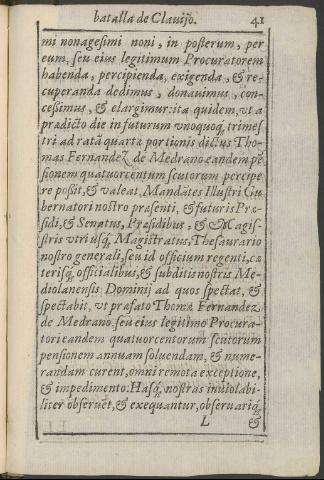 batalla de Clavijo. 41
mi nonagesimi noni, in posterum, per
eum, seu eius legitimum Procuratorem
habenda, percipienda, exigenda, & re-
cuperanda dedimus, donauimus, con-
cessimus, & elargimur: ita quidem, vt a
prædicto die in futurum vnoquoq, trimes
tri ad ratā quartæ portionis dictus Tho-
mas Fernandez de Medrano eandem pē
sionem quatuorcentum scutorum percipe
re possit, & valeat. Mandātes Illustri Gu
bernatori nostro præsenti, & futuris Præ
sidi, & Senatus, Præsidibus, & Magis-
stris vtriusq, Magistratus, Thesaurario
nostro generali, seu id officium regenti, cæ
terisq, officialibus, & subditis nostris Me-
diolanensis Dominij ad quos spectat, &
spectabit, vt præfato Thomæ Fernandez
de Medrano, seu eius legitimo Procura-
tori eandem quatuorcentorum scutorum
pensionem annuam soluendam, & nume-
randam curent, omni remota exceptione,
& impedimento: Hasq, nostras inuiolabi-
liter obseruēt, & exequantur, obseruariq,
L &